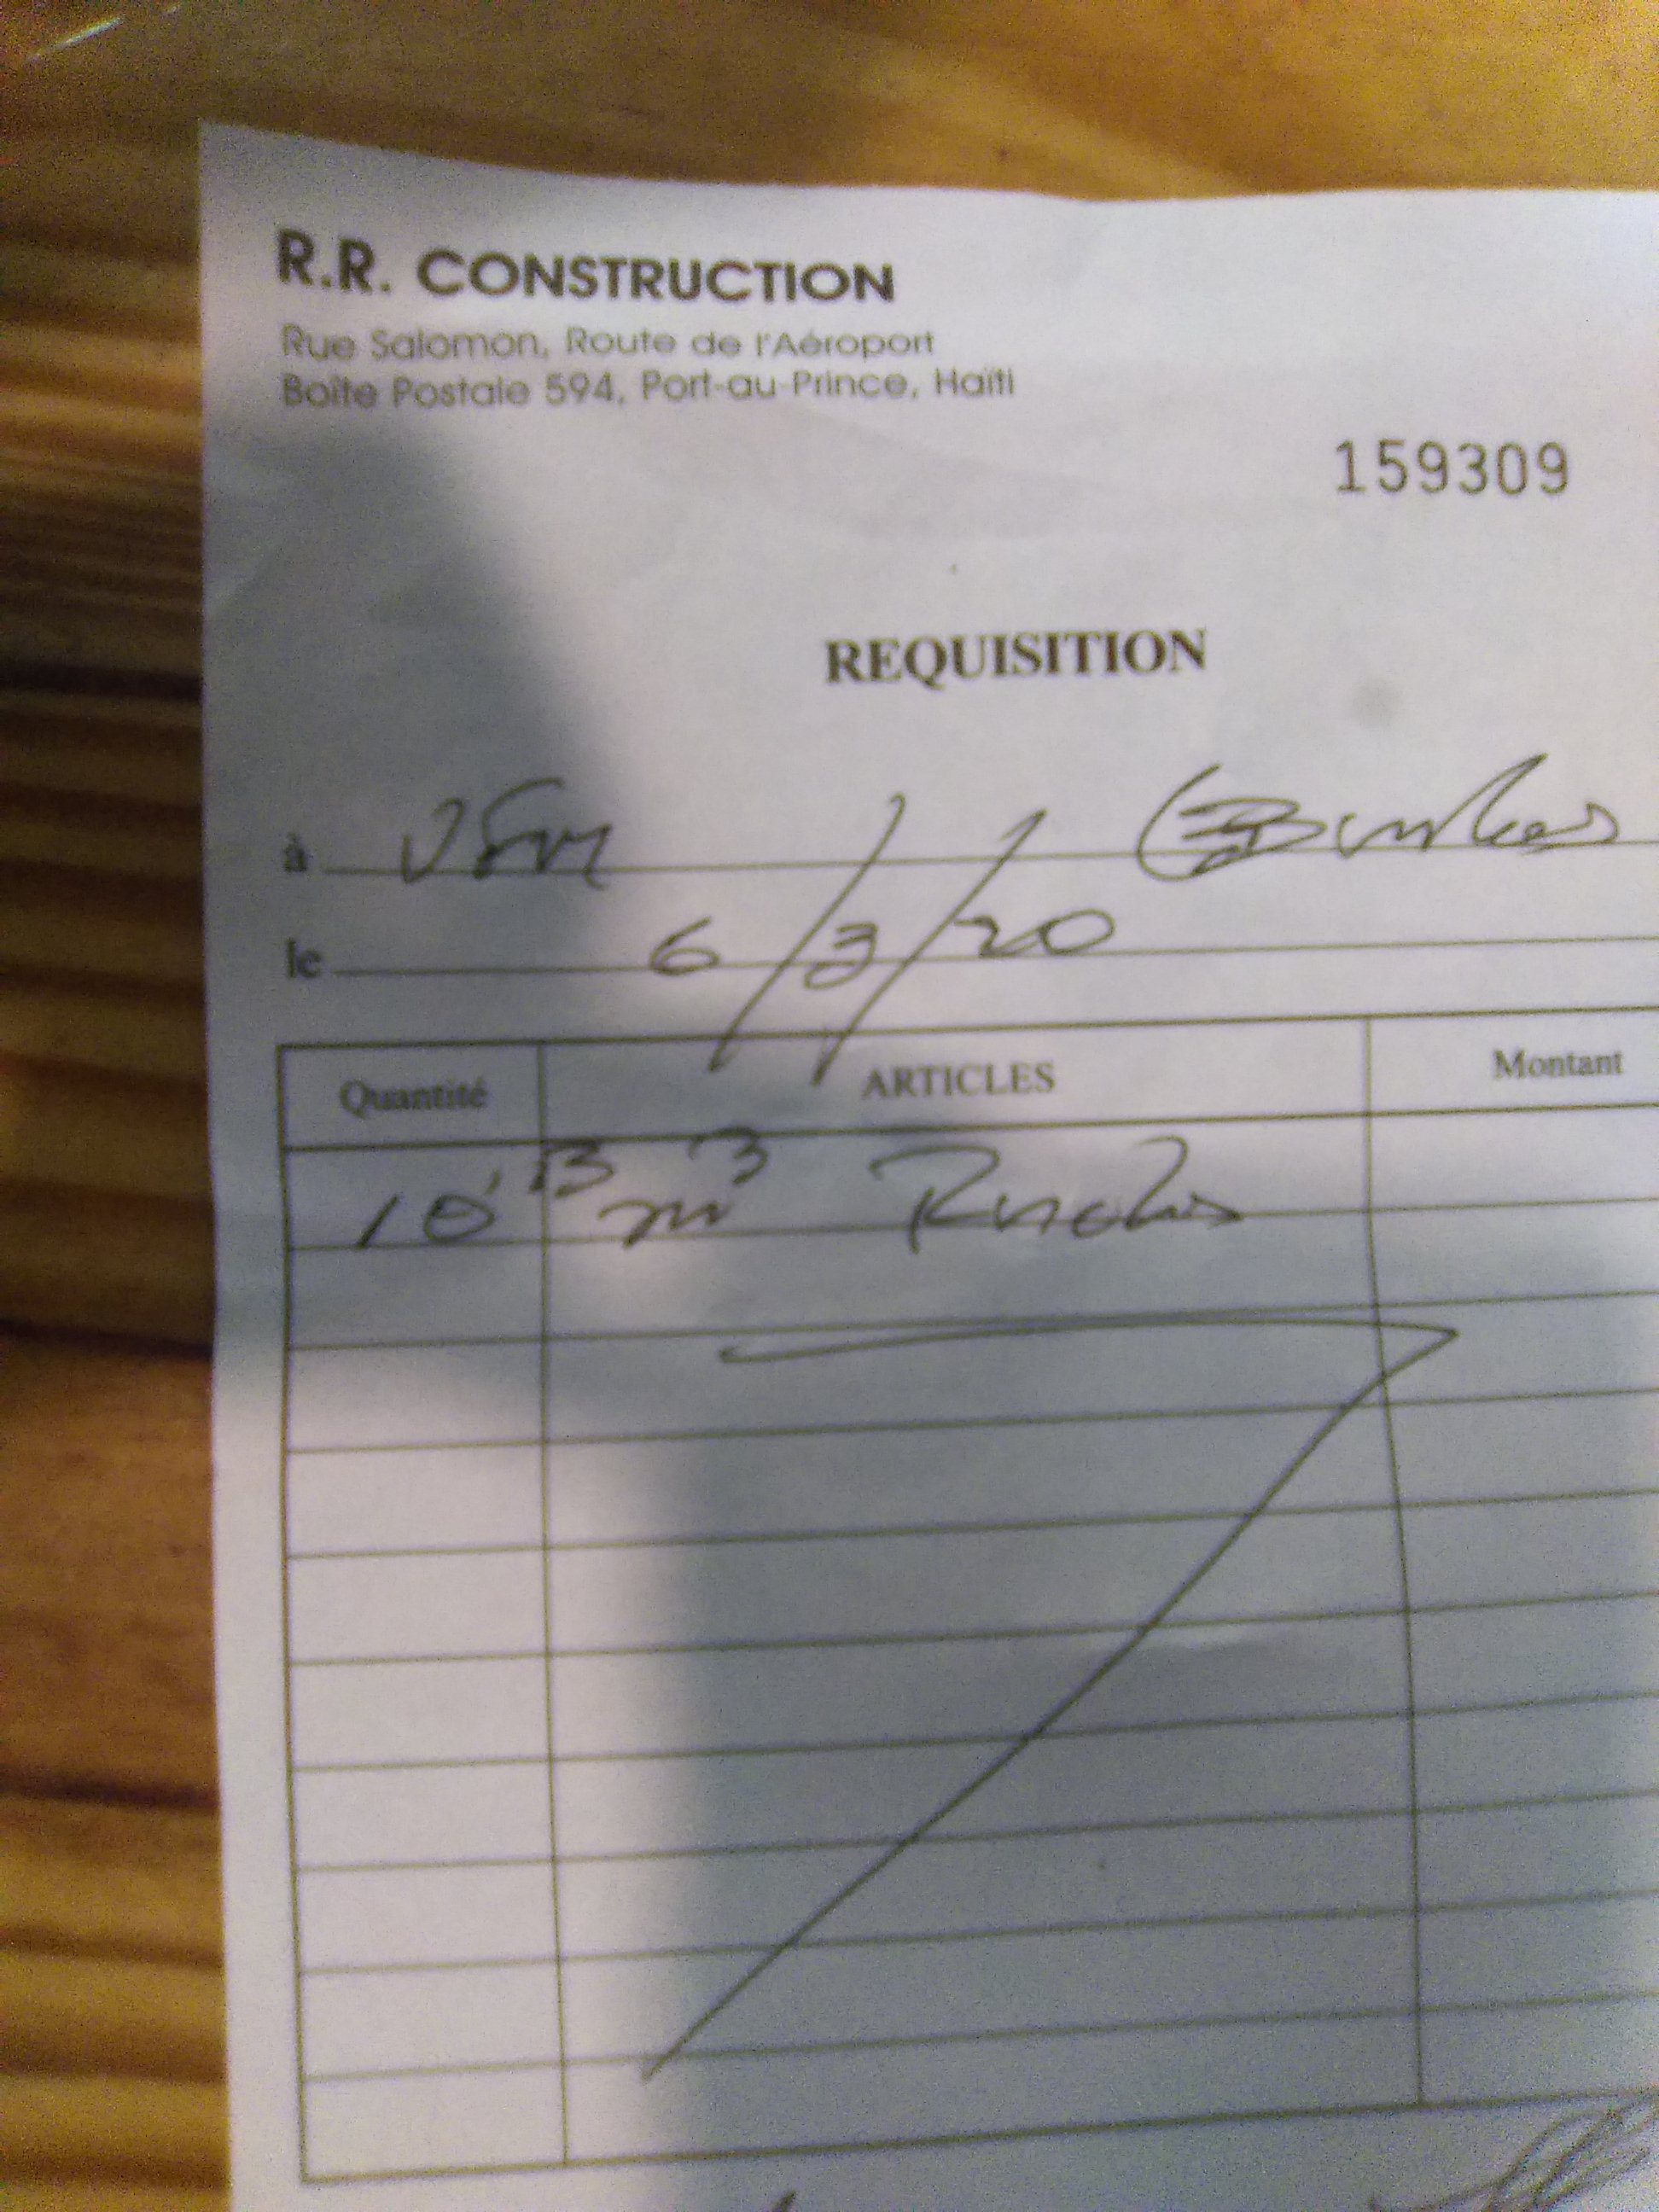 R.R. CONSTRUCTION
Rue Salomon, Route de l'Aéroport
Boîte Postale 594, Port-au-Prince, Haïti
159309
REQUISITION
à
le 6/3/20
Quantité ARTICLES Montant
10 m³